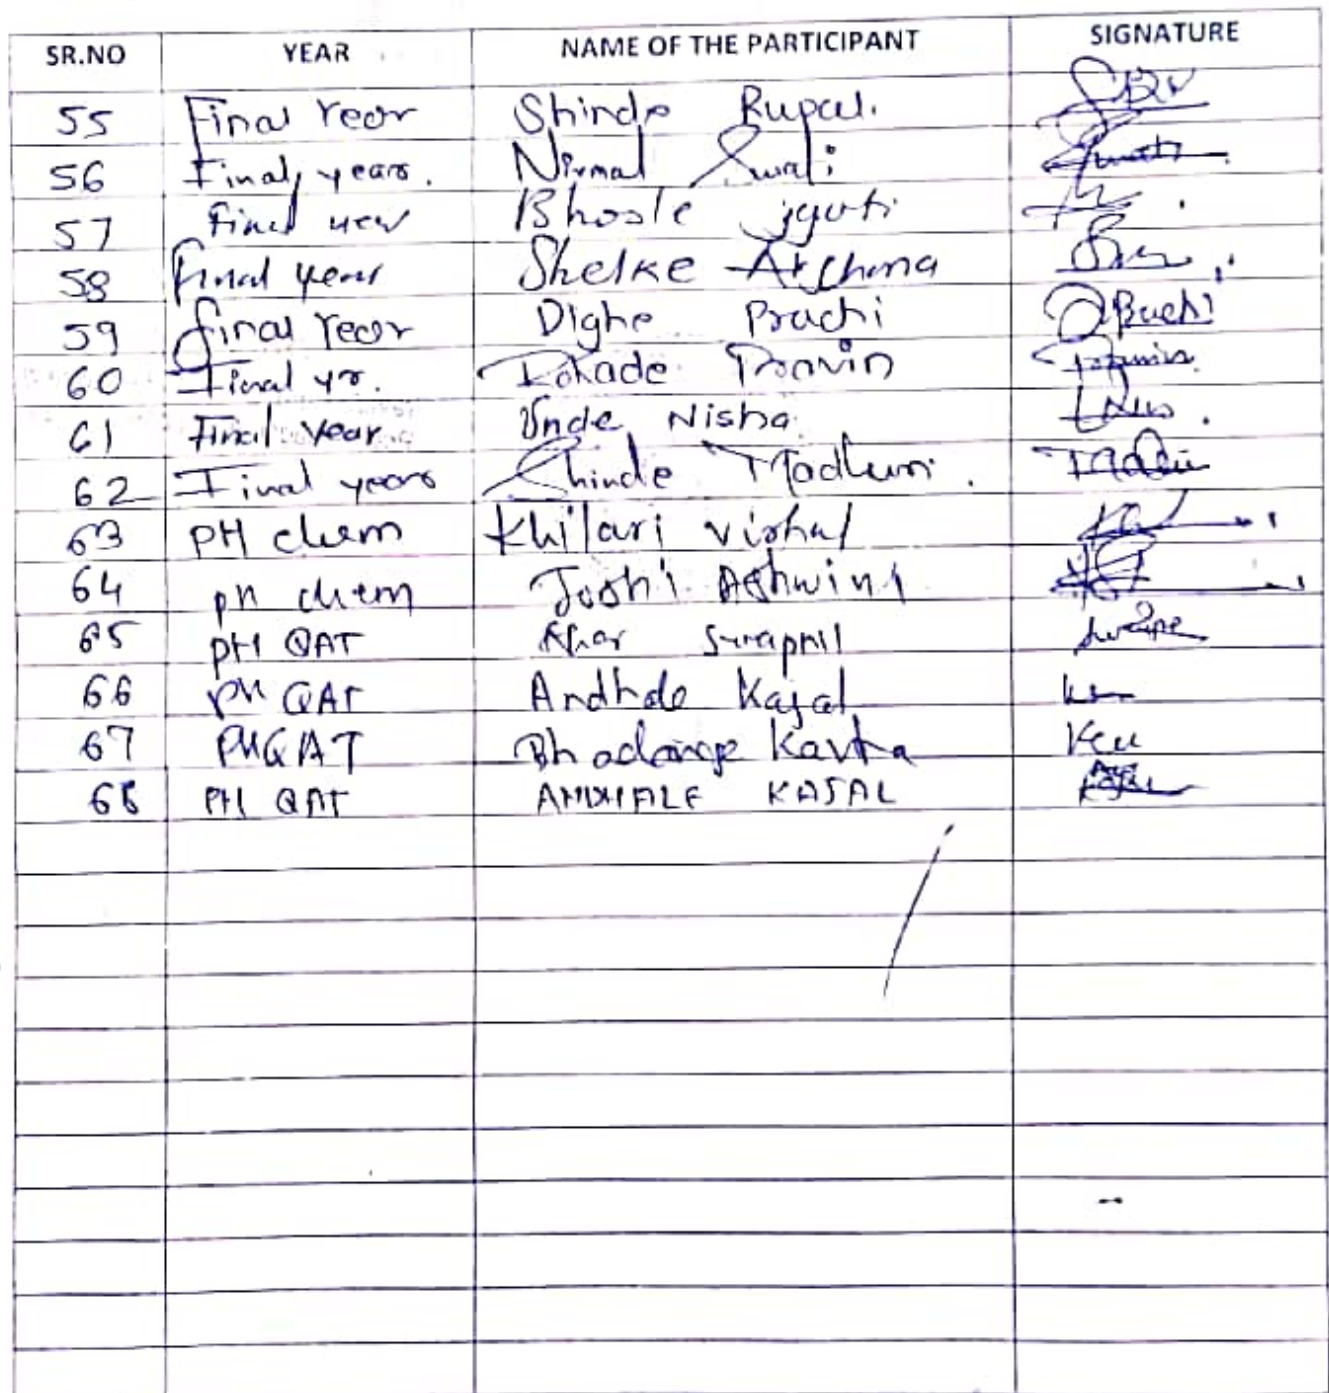 SR.NO YEAR NAME OF THE PARTICIPANT SIGNATURE
55 Final Year Shinde Rupal.
56 Final years. Nirmal Swati
57 Final year Bhosle jyoti
58 final year Shelke Archana
59 final Year Dighe Prachi Prachi
60 Final yr. Rokade Pravin Pravin
61 Final Year. Unde Nisha
62 Final years Shinde Madhuri.
63 PH chem Khilari Vishal
64 pH chem Joshi Ashwini
65 PH QAT Swapnil
66 PH QAT Andhale Kajal
67 PHQAT Bhadange Kavita
68 PH QAT KAJAL